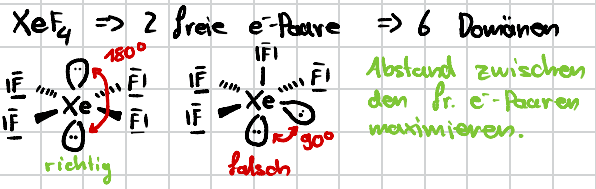 XeF4 => 2 freie e⁻-Paare => 6 Domänen
180°
|F̅ F̅|
Xe
|F̅ F̅|
richtig
|F̅|
|F̅ F̅|
Xe
|F̅
90°
falsch
Abstand zwischen
den fr. e⁻-Paaren
maximieren.